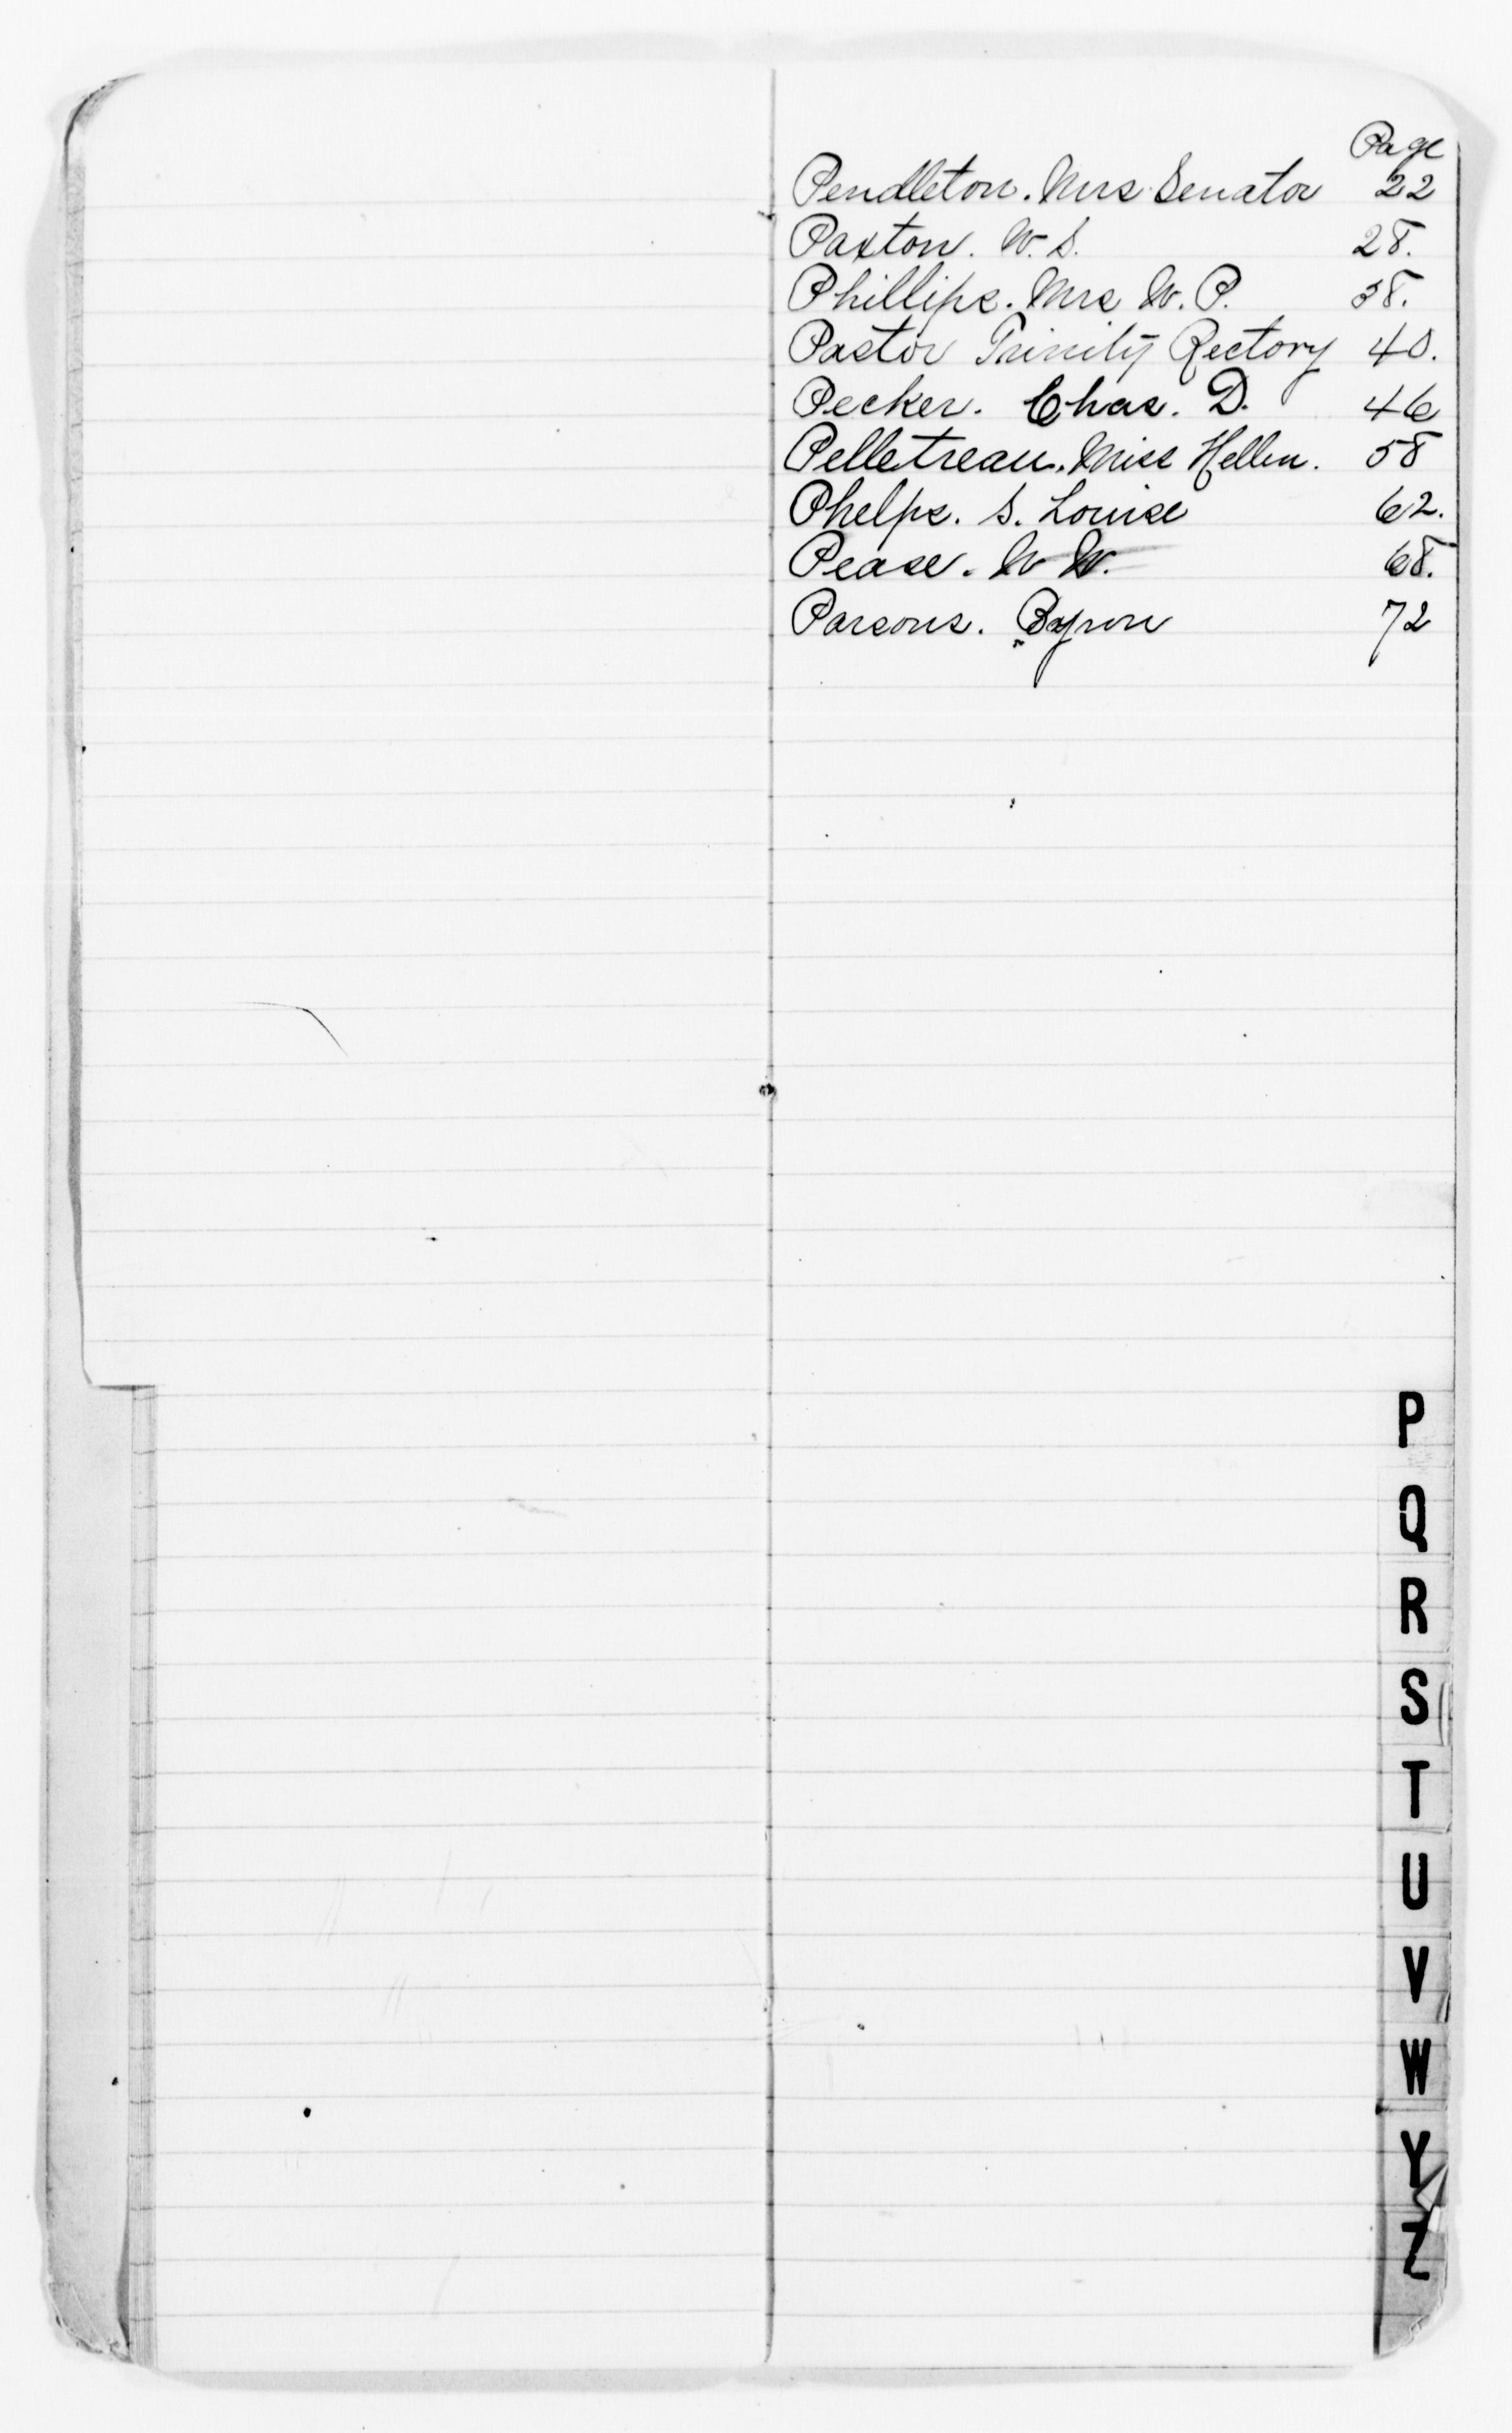 Page
Pendleton. Mrs Senator 22
Paxton. W. S. 28.
Phillips. Mrs W. P. 38.
Pastor Trinity Rectory 40.
Pecker. Chas. D. 46
Pelletreau. Miss Hellen. 58
Phelps. S. Louise 62.
Pease. W W. 68.
Parsons. Byron 72
P
Q
R
S
T
U
V
W
Y
Z